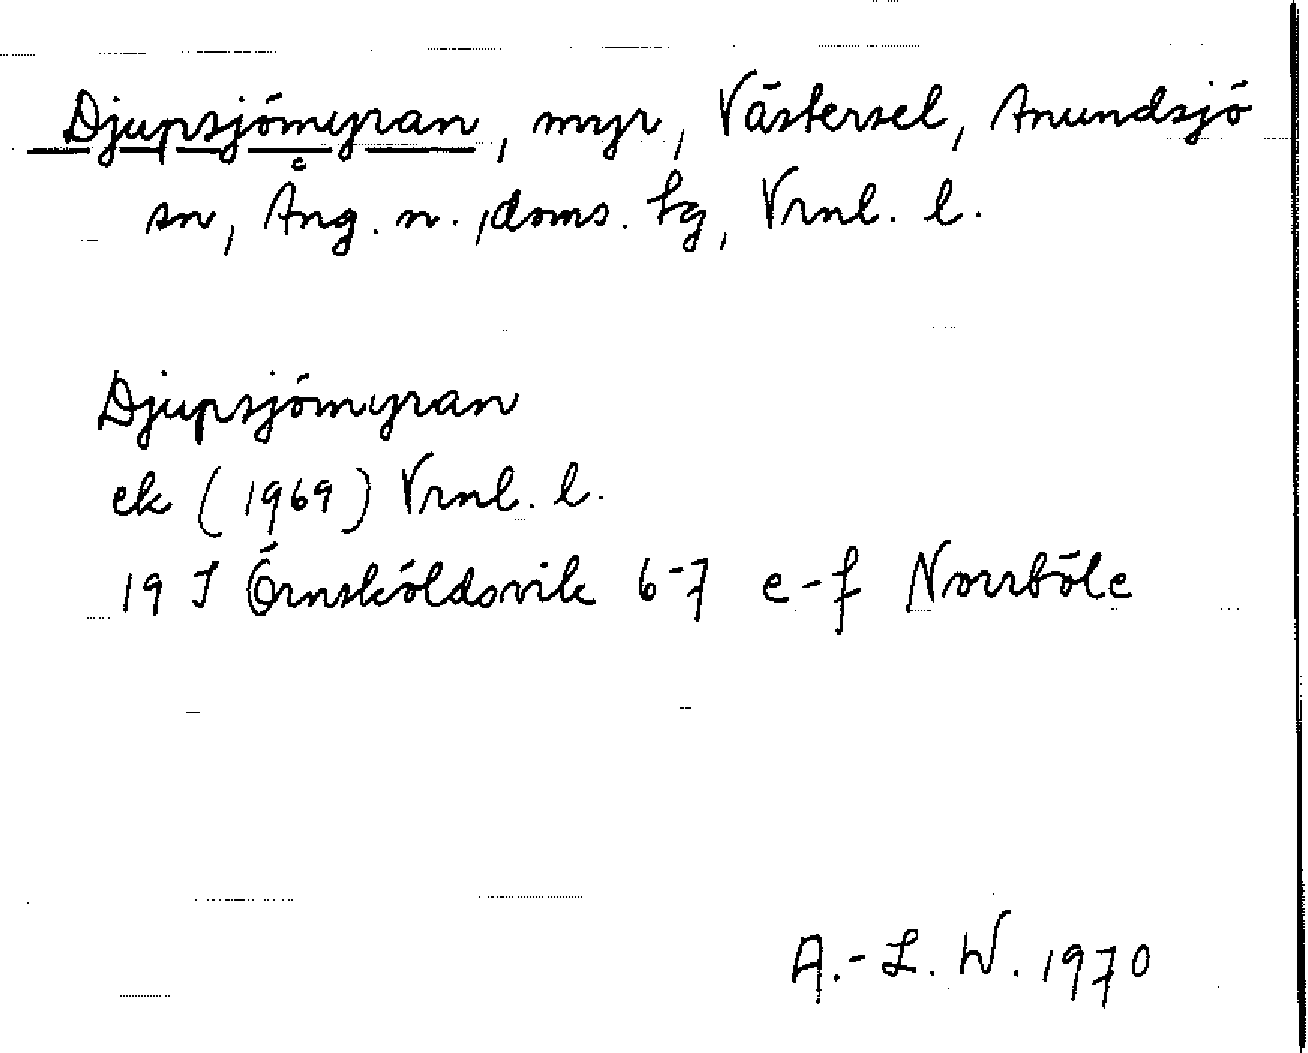 Djupsjömyran, myr, Västersel, Anundsjö
sn, Ång. n. ,doms. hg, Vrnl. l.
Djupsjömyran
ek (1969) Vrnl. l.
19 I Örnsköldsvik 6-7 e-f Norrböle
A.-L. W. 1970